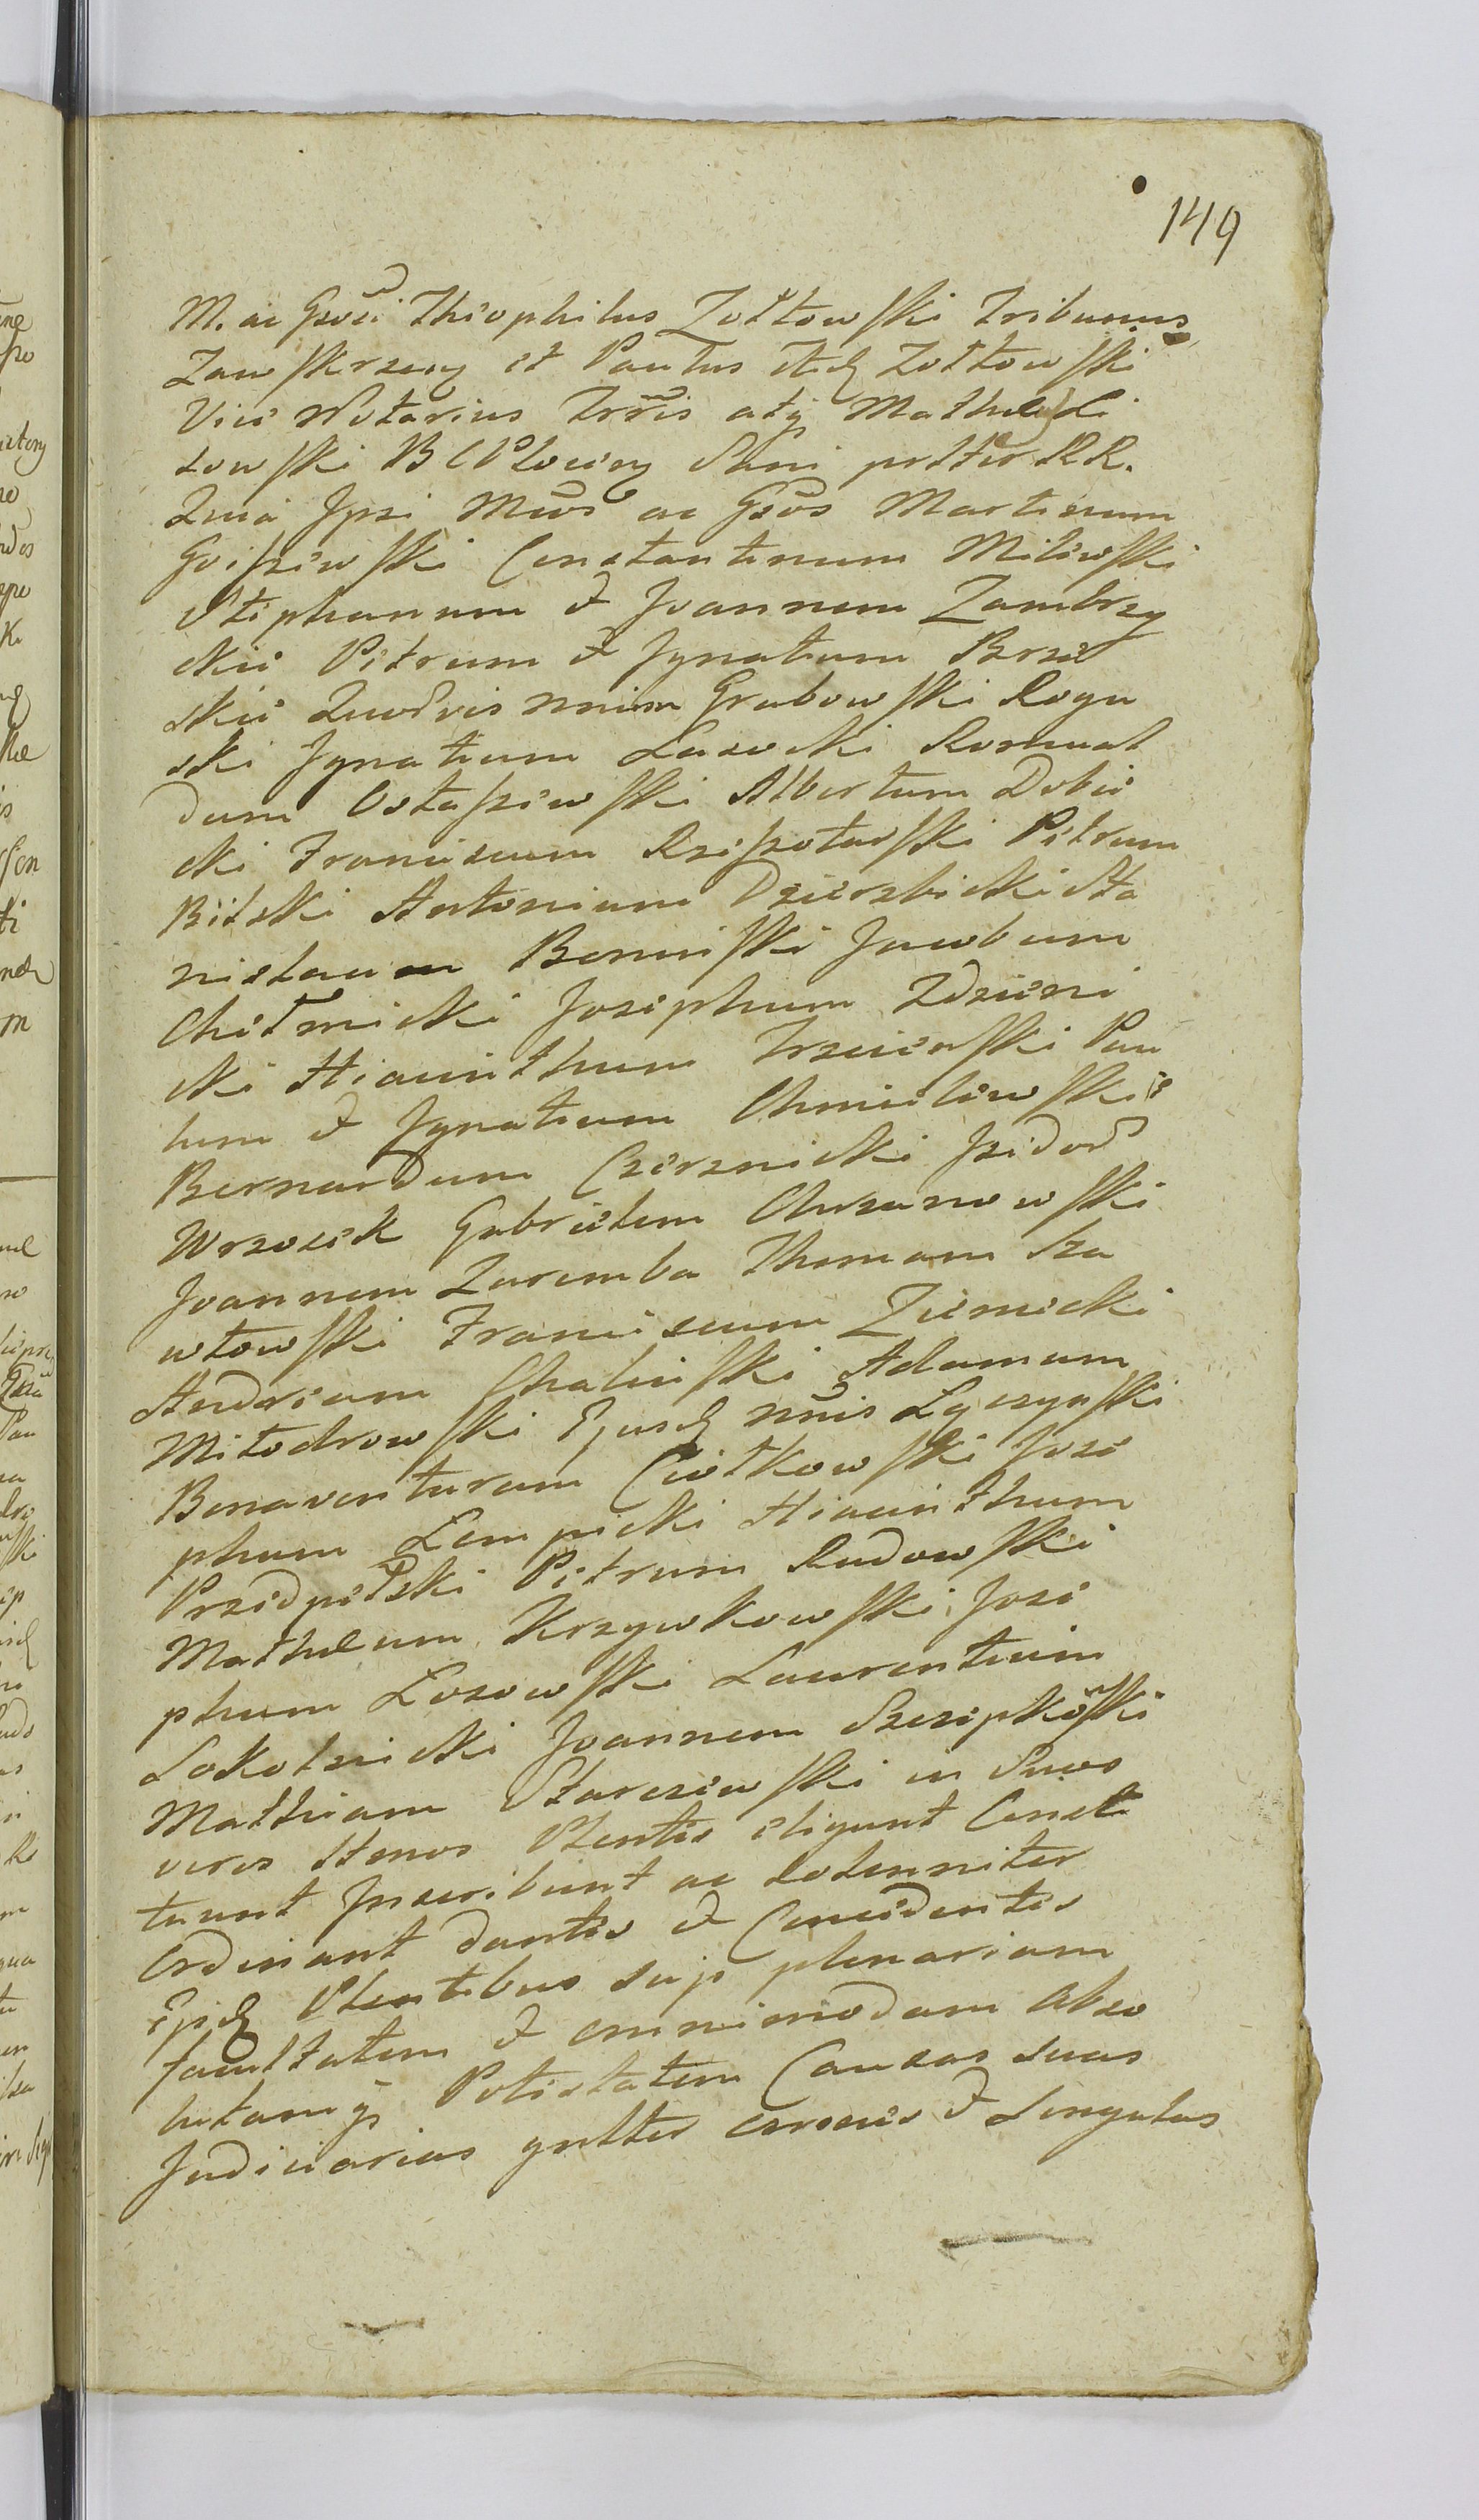 149
M. ac Gsoei Theophilus Zołtowski Tribunus
Zawskrzeng et Paulus itd Zołtowski
Vice Notarius Trris atq Matheus Li
sowski B C Ploceny Suni prstter RR.
Quia Ipsi Mcos ac Gsos Martinum
Goiszewski Constantinum Milewski
Stephanum & Joannem Zambrzy
ckie Petrum & Ignatium Brze
skie Quodvis nnium Grabowski Rogu
ski Ignatium Lasocki Romual
dum Ostaszewski Albertum Dobie
cki Franciscum Rzeszotarski Petrum
Bielski Antonium Dzierzbicki Sta
nislaum Boniński Jacobum
Chełmicki Josephum Zdzieni
cki Hiacinthum Trzcieński Pau
lum & Ignatium Chmielewskie
Bernardum Czerznicki Isidor
Wrzosek Gabrielem Chrzanowski
Joannem Zaremba Thomam Sza
włowski Franciscum Ziemecki
Andream Chaliński Adamum
Miłodrowski Ejusd nnis Łączyński
Bonaventuram Ciołkowski Jose
phum Łempicki Hiacinthum
Przedpełski Petrum Rudowski
Matheum Krzywkowski Jose
phum Łosowski Laurentium
Sokolnicki Joannem Szczepkowski
Mathiam Starczewski in Suos
veros Ittmos Plentes eligunt Consti
tuunt Inscribunt ac Solenniter
Ordinant dantes & Concedentes
Ejsd Plentibus suis plenariam
facultatem & omnimodam abso
lutamq Potestatem Causas suas
Judiciarias gnlter omnes & Singulas